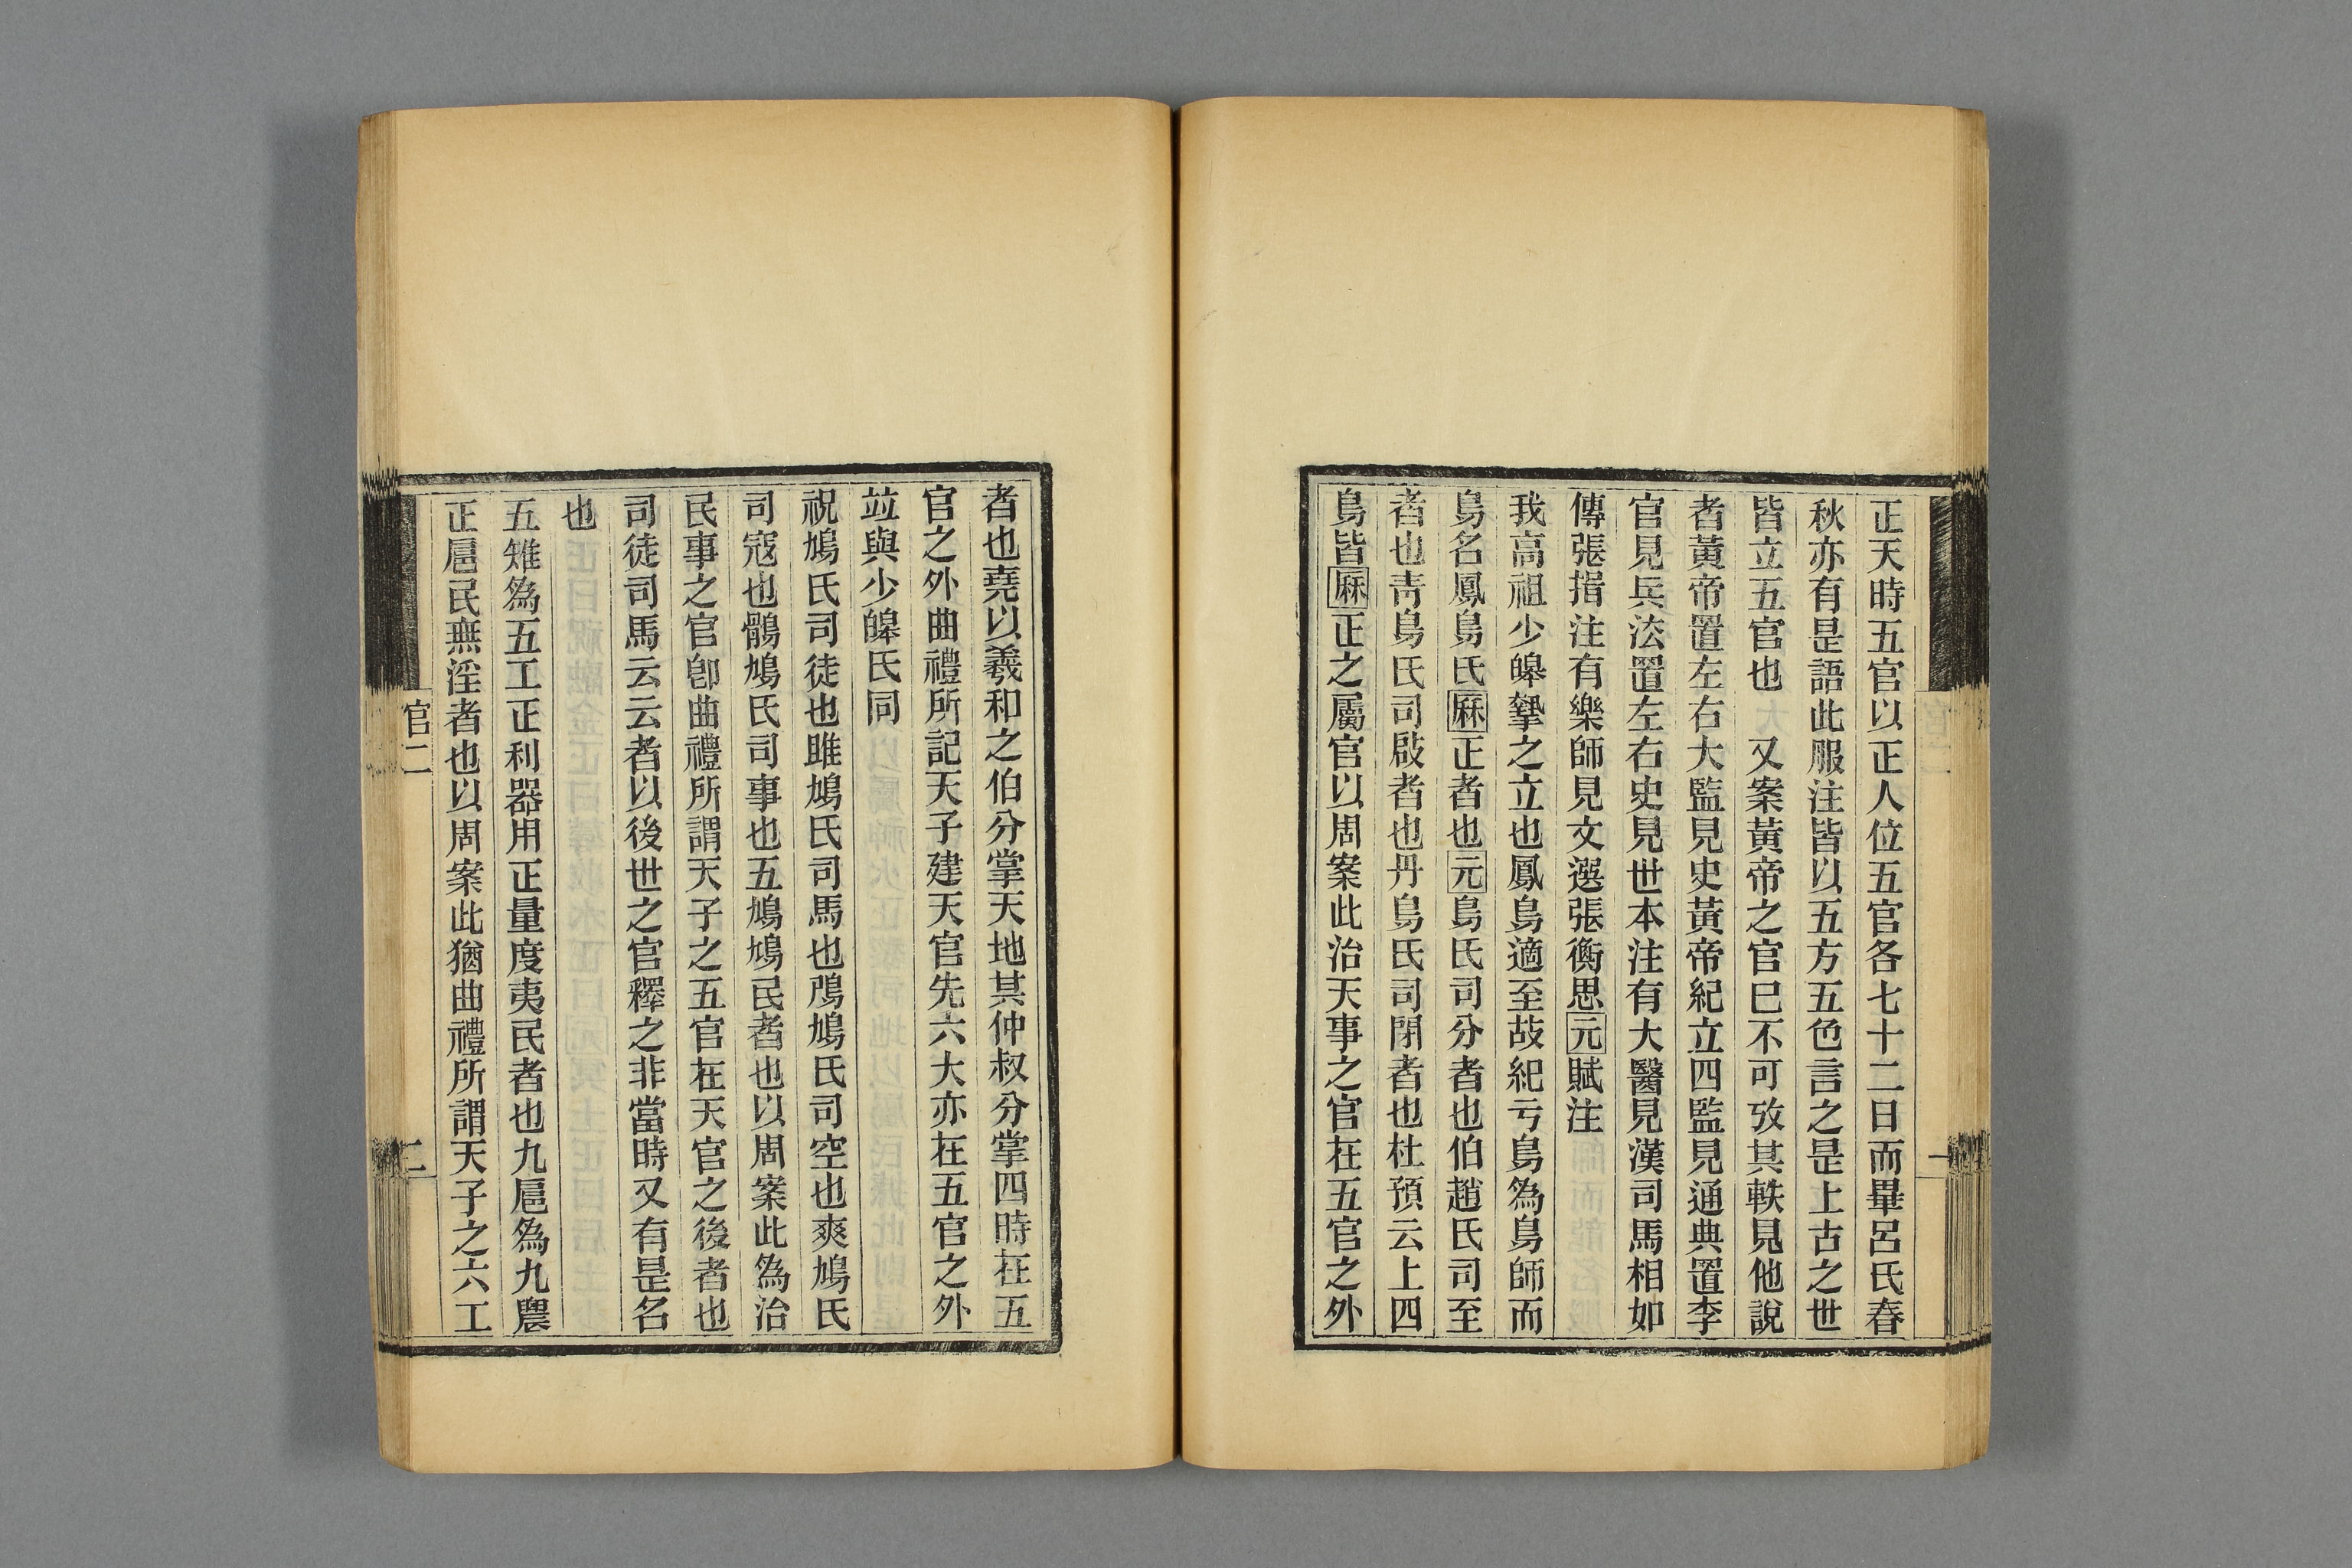 正天時五官以正人位五官各七十二日而畢呂氏春
秋亦有是語此服注皆以五方五色言之是上古之世
皆立五官也　又案黃帝之官巳不可攷其軼見他說
者黃帝置左右大監見史黃帝紀立四監見通典置李
官見兵法置左右史見世本注有大醫見漢司馬相如
傳張揖注有樂師見文選張衡思元賦注
我高祖少皞摯之立也鳳鳥適至故紀亏鳥為鳥師而
鳥名鳳鳥氏厤正者也元鳥氏司分者也伯趙氏司至
者也靑鳥氏司啟者也丹鳥氏司閉者也杜預云上四
鳥皆厤正之屬官以周案此治天事之官在五官之外
者也堯以羲和之伯分掌天地其仲叔分掌四時在五
官之外曲禮所記天子建天官先六大亦在五官之外
竝與少皞氏同
祝鳩氏司徒也雎鳩氏司馬也鳲鳩氏司空也爽鳩氏
司寇也鶻鳩氏司事也五鳩鳩民者也以周案此為治
民事之官卽曲禮所謂天子之五官在天官之後者也
司徒司馬云云者以後世之官釋之非當時又有是名
也
五雉為五工正利器用正量度夷民者也九扈為九農
正扈民無淫者也以周案此猶曲禮所謂天子之六工
官二
二